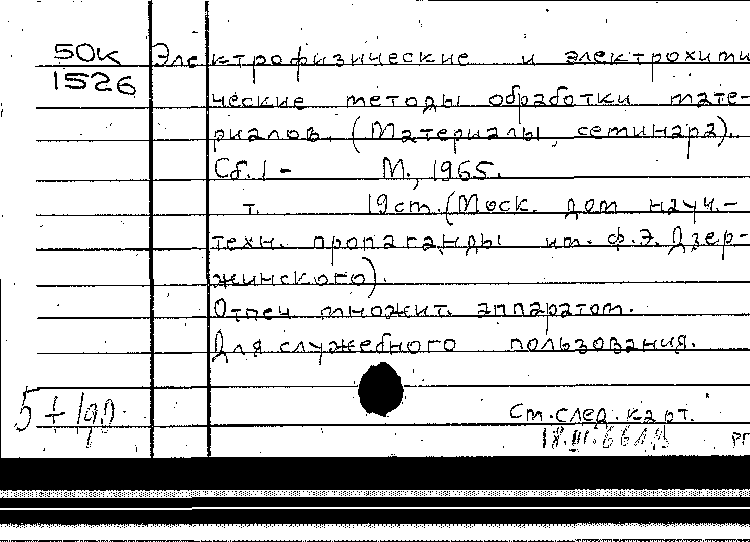 50К Электрофизические и электрохими
1526 ческие методы обработки мате-
риалов. (Материалы семинара).
Сб. 1 - М., 1965.
т. 19см. (Моск. дом науч.-
техн. пропаганды им. Ф.Э.Дзер-
жинского).
Отпеч множит. аппаратом.
Для служебного пользования.
См. след. карт.
18.III.66
РГ